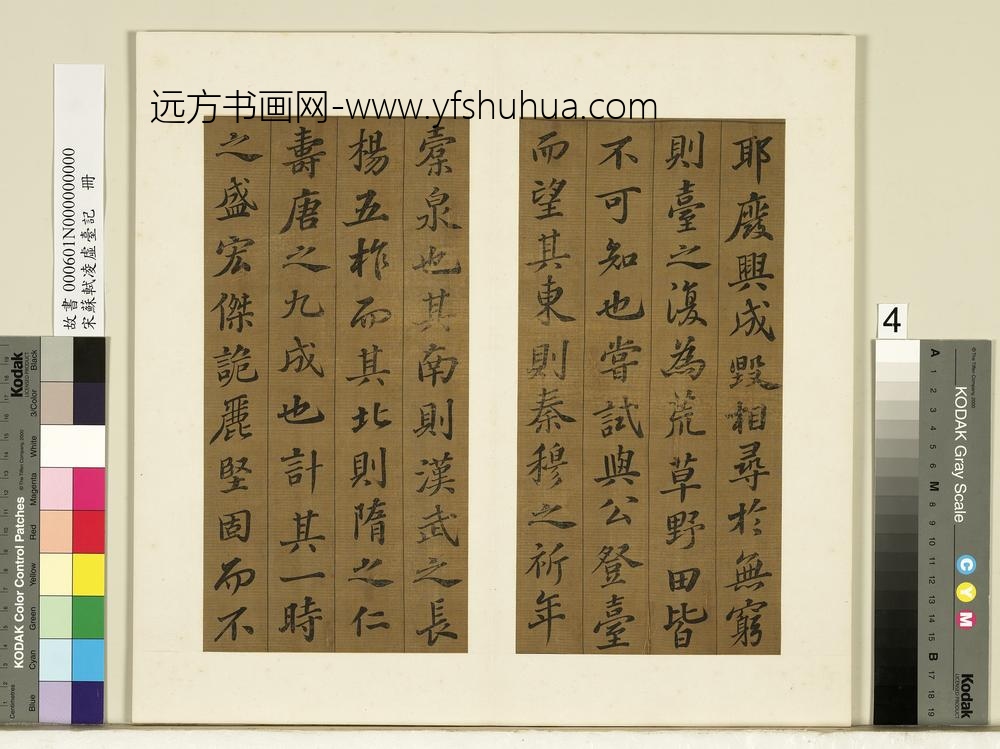 远方书画网-www.yfshuhua.com
耶廢興成毀相尋於無窮
則臺之復為荒草野田皆
不可知也嘗試與公登臺
而望其東則秦穆之祈年
橐泉也其南則漢武之長
楊五柞而其北則隋之仁
壽唐之九成也計其一時
之盛宏傑詭麗堅固而不
故書 000601N000000000
宋蘇軾凌虛臺記 冊
4
Kodak
LICENSED PRODUCT
KODAK Color Control Patches
© The Tiffen Company, 2000
Centimetres
Blue
Cyan
Green
Yellow
Red
Magenta
White
3/Color
Black
KODAK Gray Scale
© The Tiffen Company, 2000
C Y M
Kodak
LICENSED PRODUCT
A 1 2 3 4 5 6 M 8 9 10 11 12 13 14 15 B 17 18 19